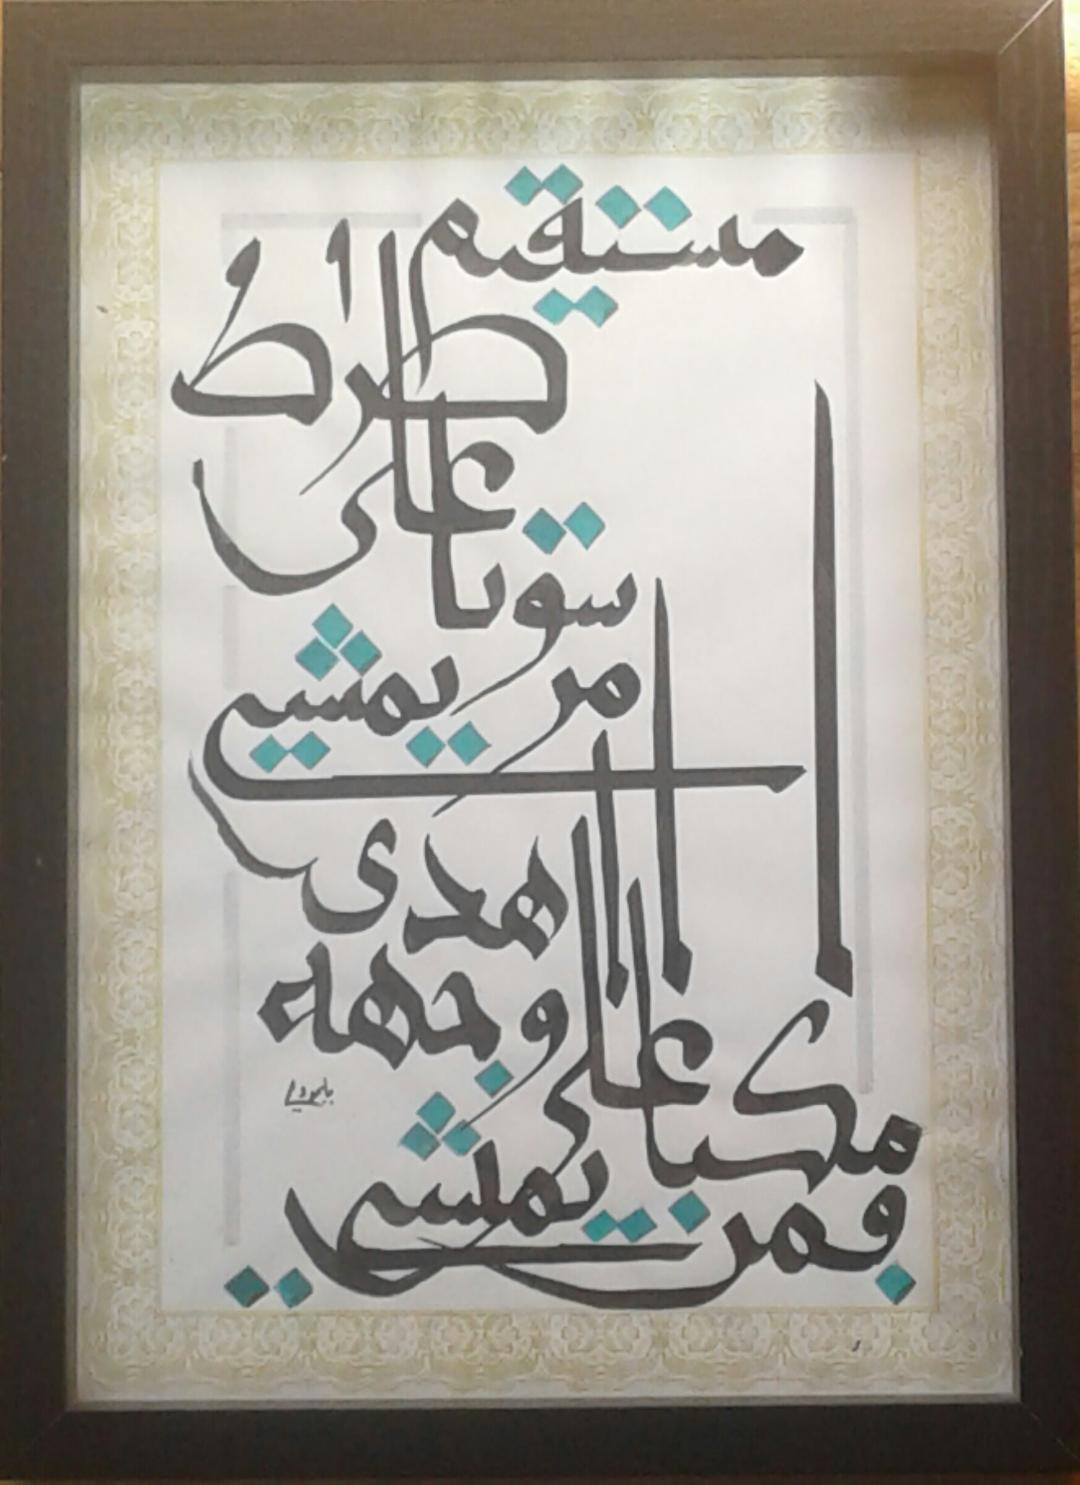 أفمن يمشي
مكبا على وجهه
أهدى
أمن يمشي
سويا على
صراط
مستقيم